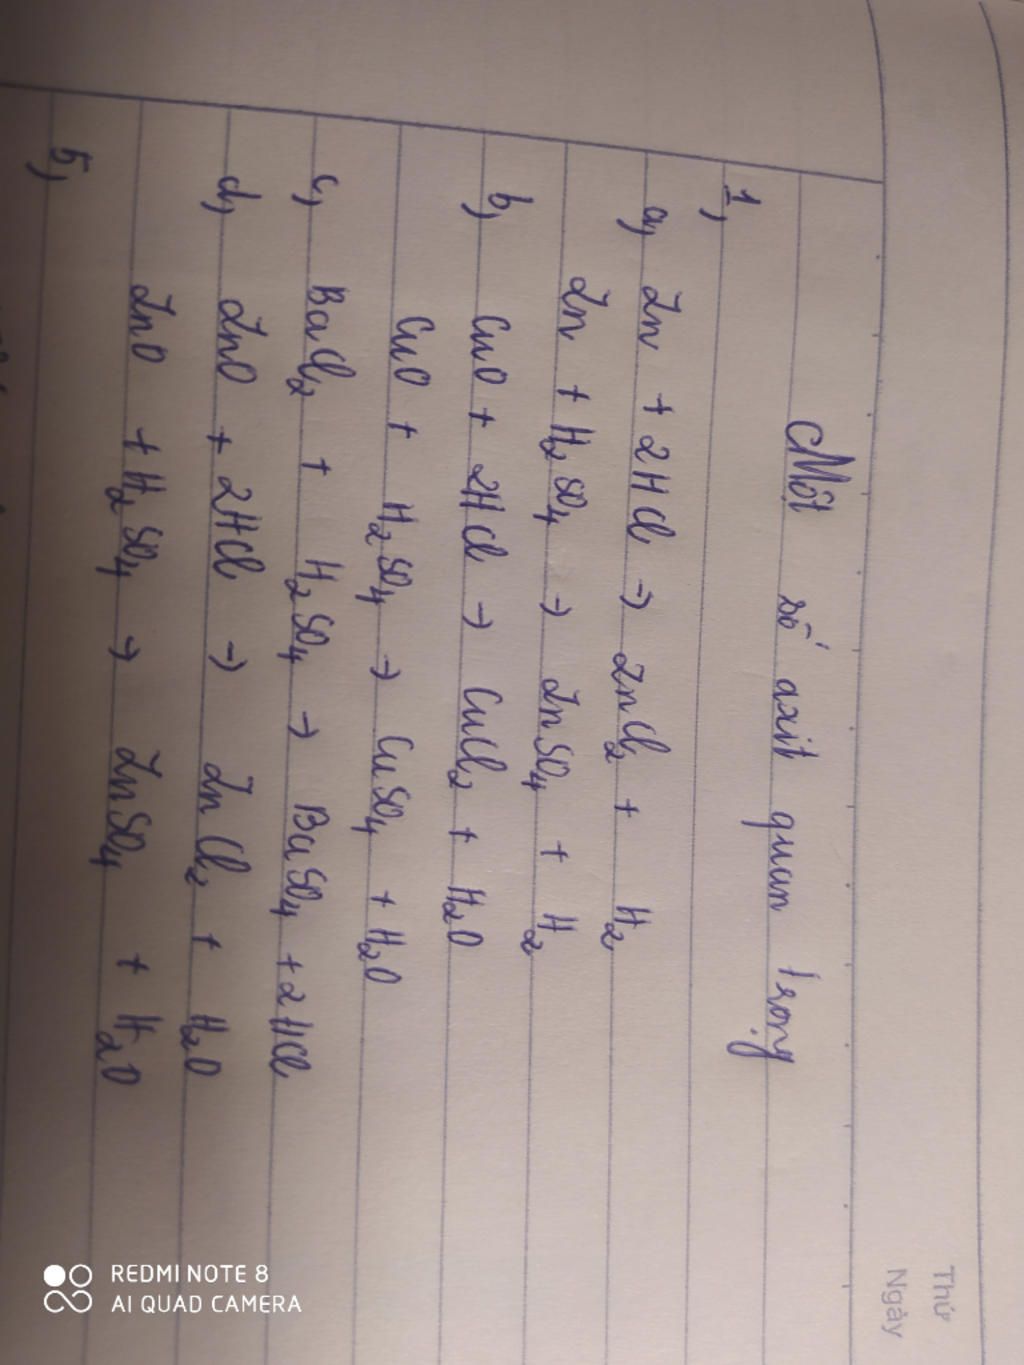 Thứ
Ngày
Một số axit quan trọng
1,
a, Zn + 2HCl → ZnCl2 + H2
Zn + H2SO4 → ZnSO4 + H2
b, CuO + 2HCl → CuCl2 + H2O
CuO + H2SO4 → CuSO4 + H2O
c, BaCl2 + H2SO4 → BaSO4 + 2HCl
d, ZnO + 2HCl → ZnCl2 + H2O
ZnO + H2SO4 → ZnSO4 + H2O
5,
REDMI NOTE 8
AI QUAD CAMERA